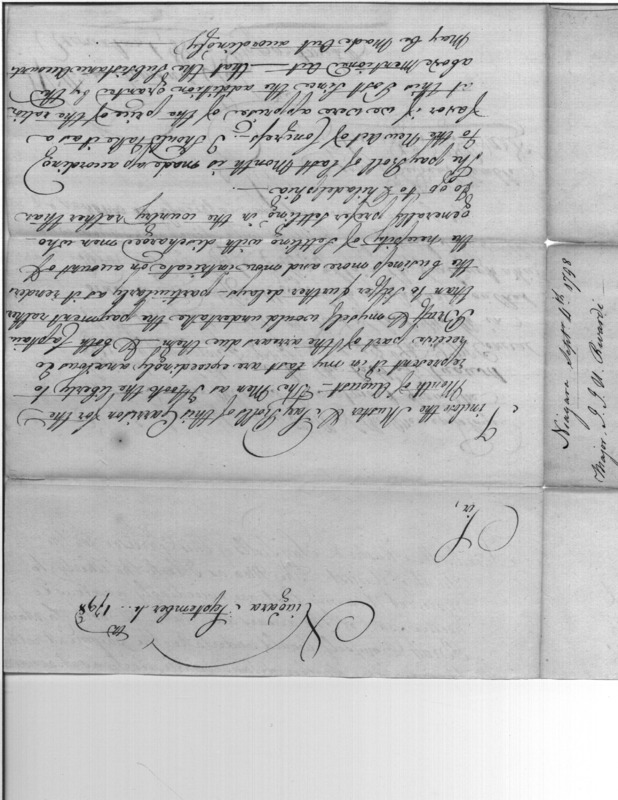 Niagara September 4th 1798
Sir,
I inclose the Muster & Pay Roll of this Garrison for the
Month of August – The Men as I took the liberty to
represent it in my last are exceedingly anxious to
receive part of the arrears due them & both Captain
Bruff & myself would undertake the payment rather
than to suffer further delays – particularly as it renders
the business more and more intricate on account of
the necessity of settling with discharged men who
generally prefer settling in the country rather than
to go to Philadelphia –
The pay Roll of last Month is made up according
to the New Act of Congress. I should take it as a
favor if we were apprised of the price of the ration
at this Post since the addition granted by the
above mentioned Act – that the Subsistance Accounts
May be Made Out accordingly –
Niagara Septr 4th 1798
Major J. J. U. Rivardi –